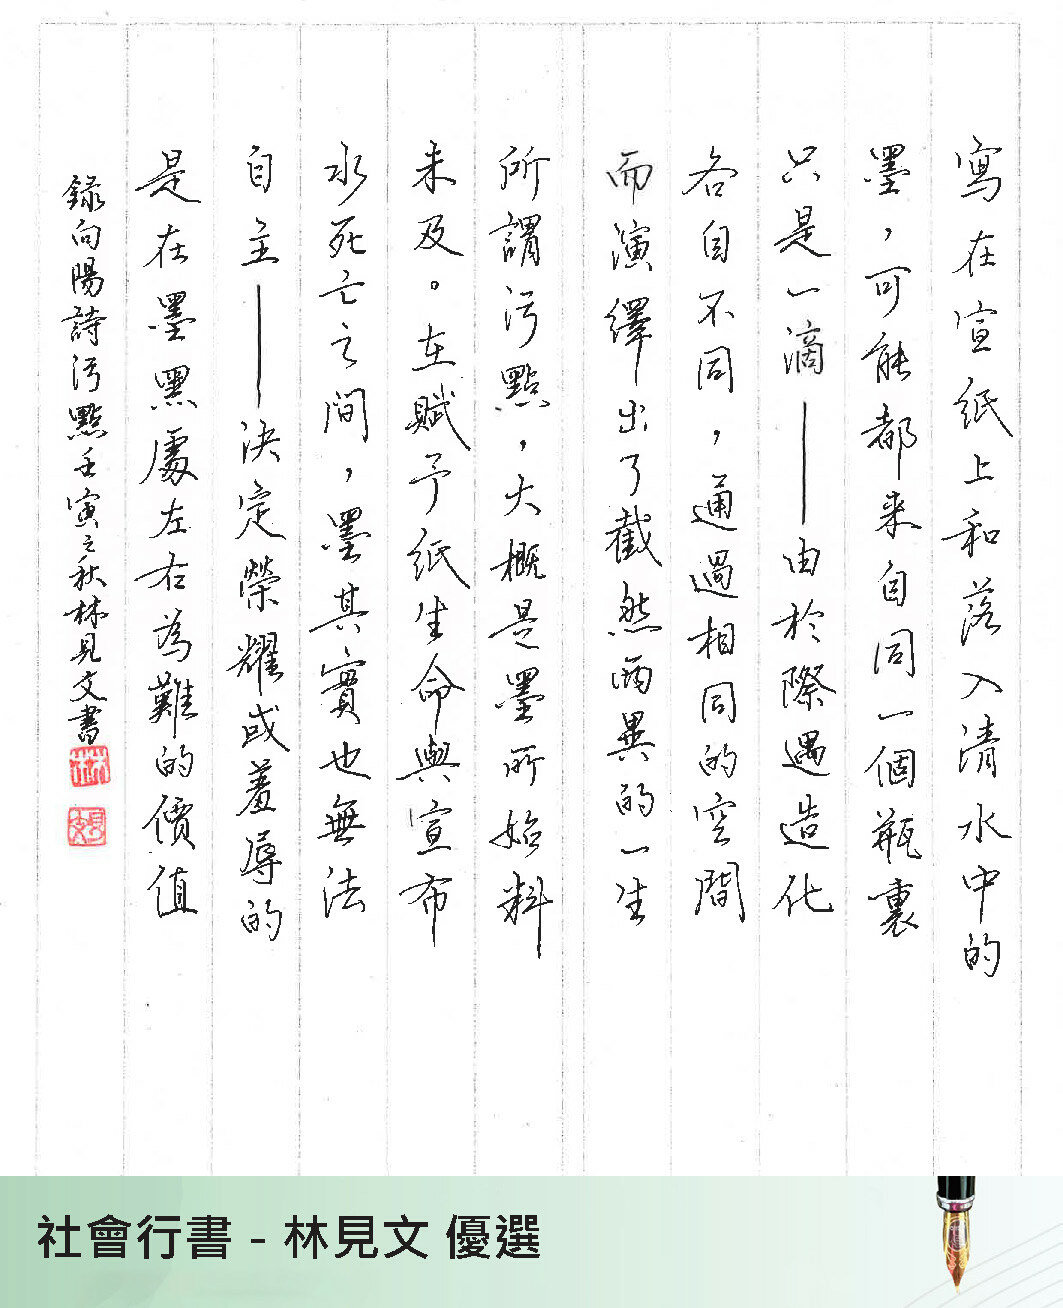 寫在宣紙上和落入清水中的
墨，可能都来自同一個瓶裏
只是一滴——由於際遇造化
各自不同，通過相同的空間
而演繹出了截然兩異的一生
所謂污點，大概是墨所始料
未及。在賦予紙生命與宣布
水死亡之間，墨其實也無法
自主——決定榮耀或羞辱的
是在墨黑處左右為難的價值
錄向陽詩污點壬寅之秋林見文書
社會行書 - 林見文 優選